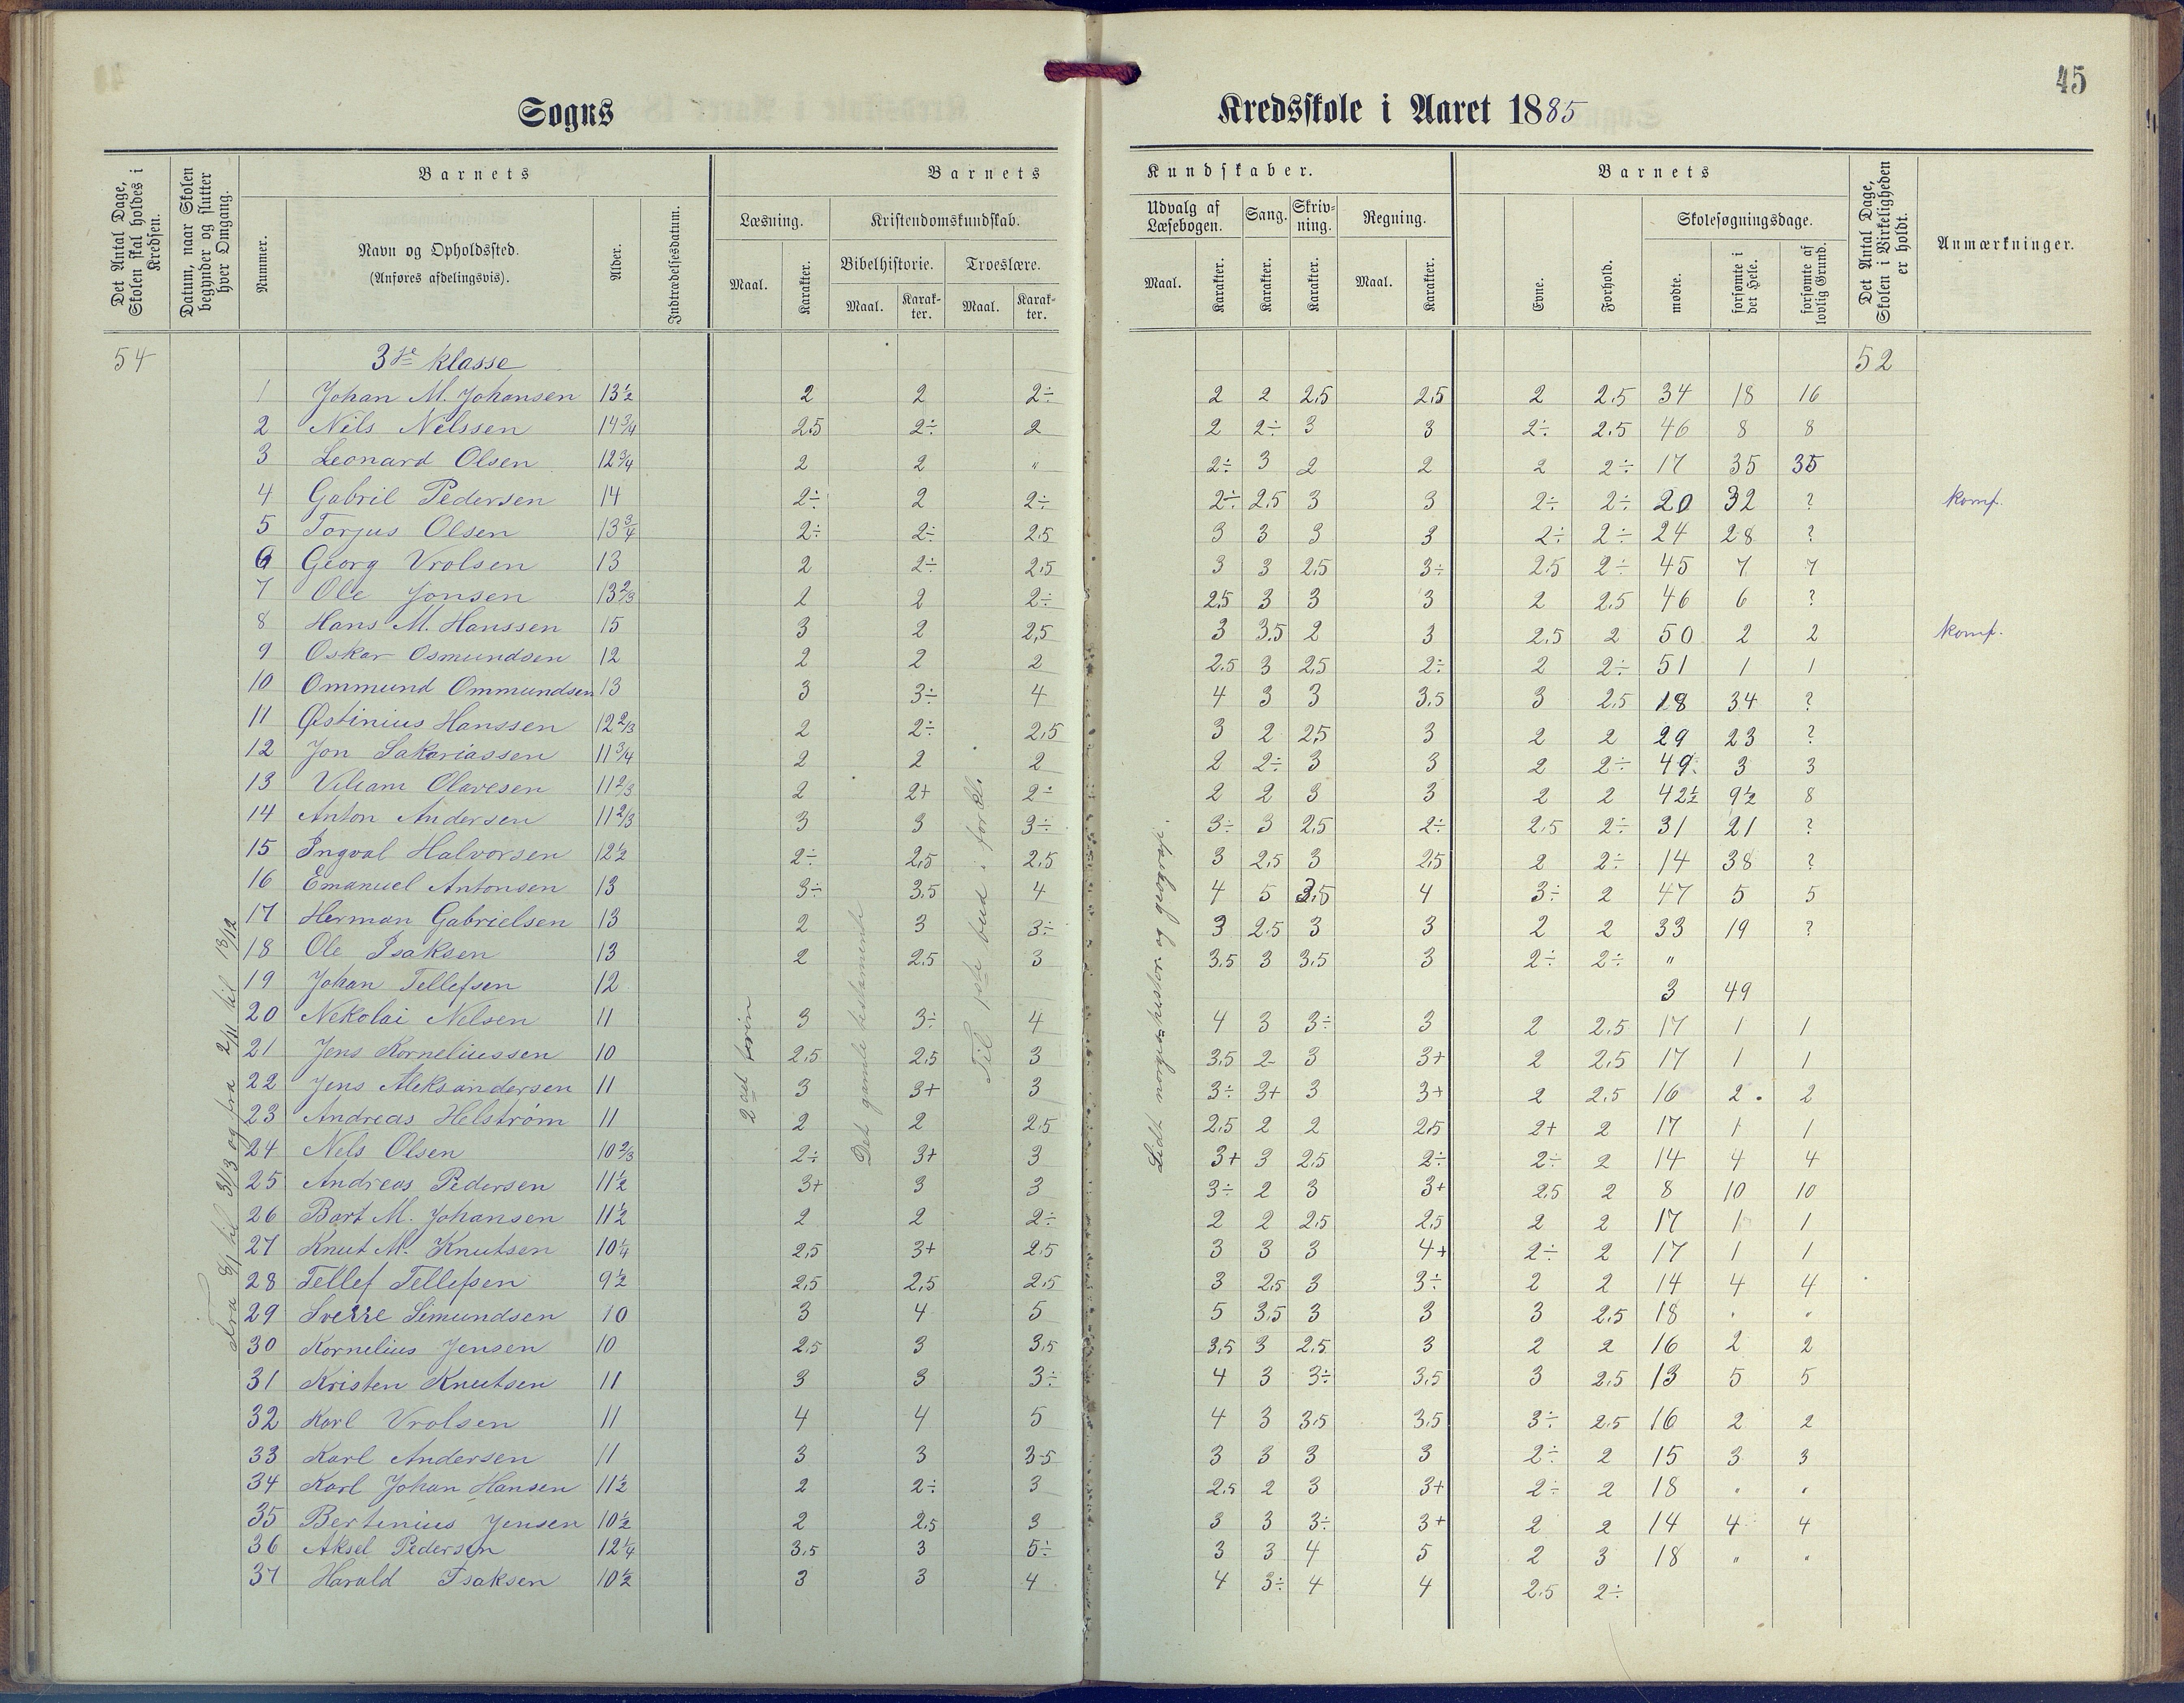 45
Sogns Kredsskole i Aaret 1885
Det Antal Dage, Skolen skal holdes i Kredsen.
Datum, naar Skolen begynder og slutter hver Omgang.
Barnets
Nummer.
Navn og Opholdssted.
(Anføres afdelingsvis).
Alder.
Indtrædelsesdatum.
Barnets Kundskaber.
Læsning.
Maal. Karakter.
Kristendomskundskab.
Bibelhistorie. Troeslære.
Maal. Karakter. Maal. Karakter.
Udvalg af Læsebogen. Sang. Skrivning. Regning.
Maal. Karakter. Karakter. Karakter. Maal. Karakter.
Barnets
Evne. Forhold.
Skolesøgningsdage.
mødte. forsømte i det Hele. forsømte af lovlig Grund.
Det Antal Dage, Skolen i Virkeligheden er holdt.
Anmærkninger.
54 3die klasse 52
1 Johan M. Johansen 13½ 2 2 2÷ 2 2 2,5 2,5 2 2,5 34 18 16
2 Nils Nelssen 14¾ 2,5 2÷ 2 2 2÷ 3 3 2÷ 2,5 46 8 8
3 Leonard Olsen 12¾ 2 2 " 2÷ 3 2 2 2 2÷ 17 35 35
4 Gabril Pedersen 14 2÷ 2 2÷ 2÷ 2,5 3 3 2÷ 2÷ 20 32 ? komf.
5 Torjus Olsen 13¾ 2÷ 2÷ 2,5 3 3 3 3 2÷ 2÷ 24 28 ?
6 Georg Vrolsen 13 2 2÷ 2,5 3 3 2,5 3÷ 2,5 2÷ 45 7 7
7 Ole Jonsen 13⅔ 2 2 2÷ 2,5 3 3 3 2 2,5 46 6 ?
8 Hans M. Hanssen 15 3 2 2,5 3 3,5 2 3 2,5 2 50 2 2 komf.
9 Oskar Osmundsen 12 2 2 2 2,5 3 2,5 2÷ 2 2÷ 51 1 1
10 Ommund Ommundsen 13 3 3÷ 4 4 3 3 3,5 3 2,5 18 34 ?
11 Østinius Hanssen 12⅔ 2 2÷ 2,5 3 2 2,5 3 2 2 29 23 ?
12 Jon Sakariassen 11¾ 2 2 2 2 2÷ 3 3 2 2÷ 49 3 3
13 Viliam Olavesen 11⅔ 2 2+ 2÷ 2 2 3 3 2 2 42½ 9½ 8
14 Anton Andersen 11⅔ 3 3 3÷ 3÷ 3 2,5 2÷ 2,5 2÷ 31 21 ?
15 Ingval Halvorsen 12½ 2÷ 2,5 2,5 3 2,5 3 2,5 2 2÷ 14 38 ?
16 Emanuel Antonsen 13 3÷ 3,5 4 4 5 3,5 4 3÷ 2 47 5 5
17 Herman Gabrielsen 13 2 3 3÷ 3 2,5 3 3 2 2 33 19 ?
18 Ole Isaksen 13 2 2,5 3 3,5 3 3,5 3 2÷ 2÷ "
19 Johan Tellefsen 12 3 49
20 Nekolai Nelsen 11 3 3÷ 4 4 3 3÷ 3 2 2,5 17 1 1
21 Jens Korneliussen 10 2,5 2,5 3 3,5 2 3 3+ 2 2,5 17 1 1
22 Jens Aleksandersen 11 3 3+ 3 3÷ 3+ 3 3+ 2 2,5 16 2 . 2
23 Andreas Helstrøm 11 2 2 2,5 2,5 2 2 2,5 2+ 2 17 1 1
24 Nels Olsen 10⅔ 2÷ 3+ 3 3+ 3 2,5 2÷ 2÷ 2 14 4 4
25 Andreas Pedersen 11½ 3+ 3 3 3÷ 2 3 3+ 2,5 2 8 10 10
26 Bart M. Johansen 11½ 2 2 2÷ 2 2 2,5 2,5 2 2 17 1 1
27 Knut M. Knutsen 10¼ 2,5 3+ 2,5 3 3 3 4+ 2÷ 2 17 1 1
28 Tellef Tellefsen 9½ 2,5 2,5 2,5 3 2,5 3 3÷ 2 2 14 4 4
29 Sverre Simundsen 10 3 4 5 5 3,5 3 3 3 2,5 18 " "
30 Kornelius Jensen 10 2,5 3 3,5 3,5 3 2,5 3 2 2 16 2 2
31 Kristen Knutsen 11 3 3 3÷ 4 3 3÷ 3,5 3 2,5 13 5 5
32 Karl Vrolsen 11 4 4 5 4 3 3,5 3,5 3÷ 2,5 16 2 2
33 Karl Andersen 11 3 3 3,5 3 3 3 3 2÷ 2 15 3 3
34 Karl Johan Hansen 11½ 2 2÷ 3 2,5 2 3 3+ 2÷ 2 18 " "
35 Bertinius Jensen 10½ 2 2,5 3 3 3 3÷ 3+ 2 2 14 4 4
36 Aksel Pedersen 12¼ 3,5 3 5÷ 3 3 4 5 2 3 18 " "
37 Harald Isaksen 10½ 3 3 4 4 3÷ 4 4 2,5 2÷
Fra 8/1 til 31/3 og fra 2/11 til 13/12
2det
Det gamle testamente
Til 1ste bud i forkl.
Lidt norgeshistor. og geografi.